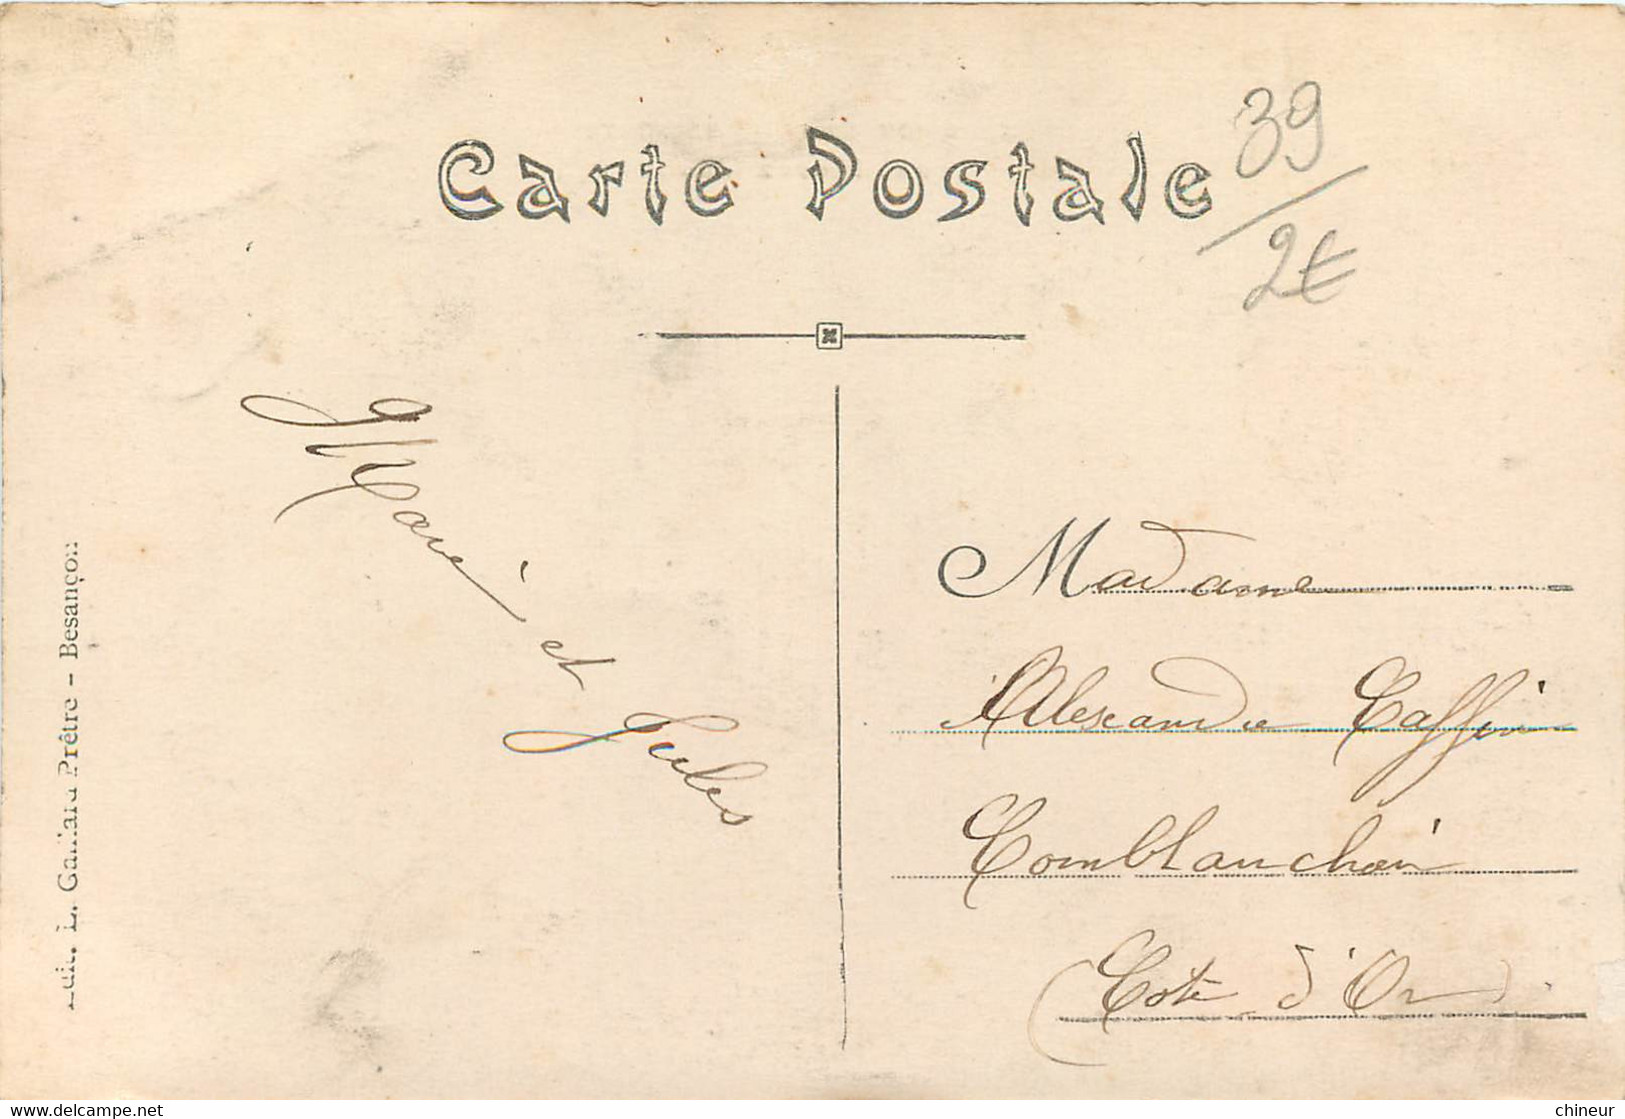 Carte Postale
39
2€
Marie et Jules
Madame
Alexandre Caffin
Comblanchien
(Côte d'Or)
Edit. L. Gaillard Prêtre - Besançon
www.delcampe.net
chineur